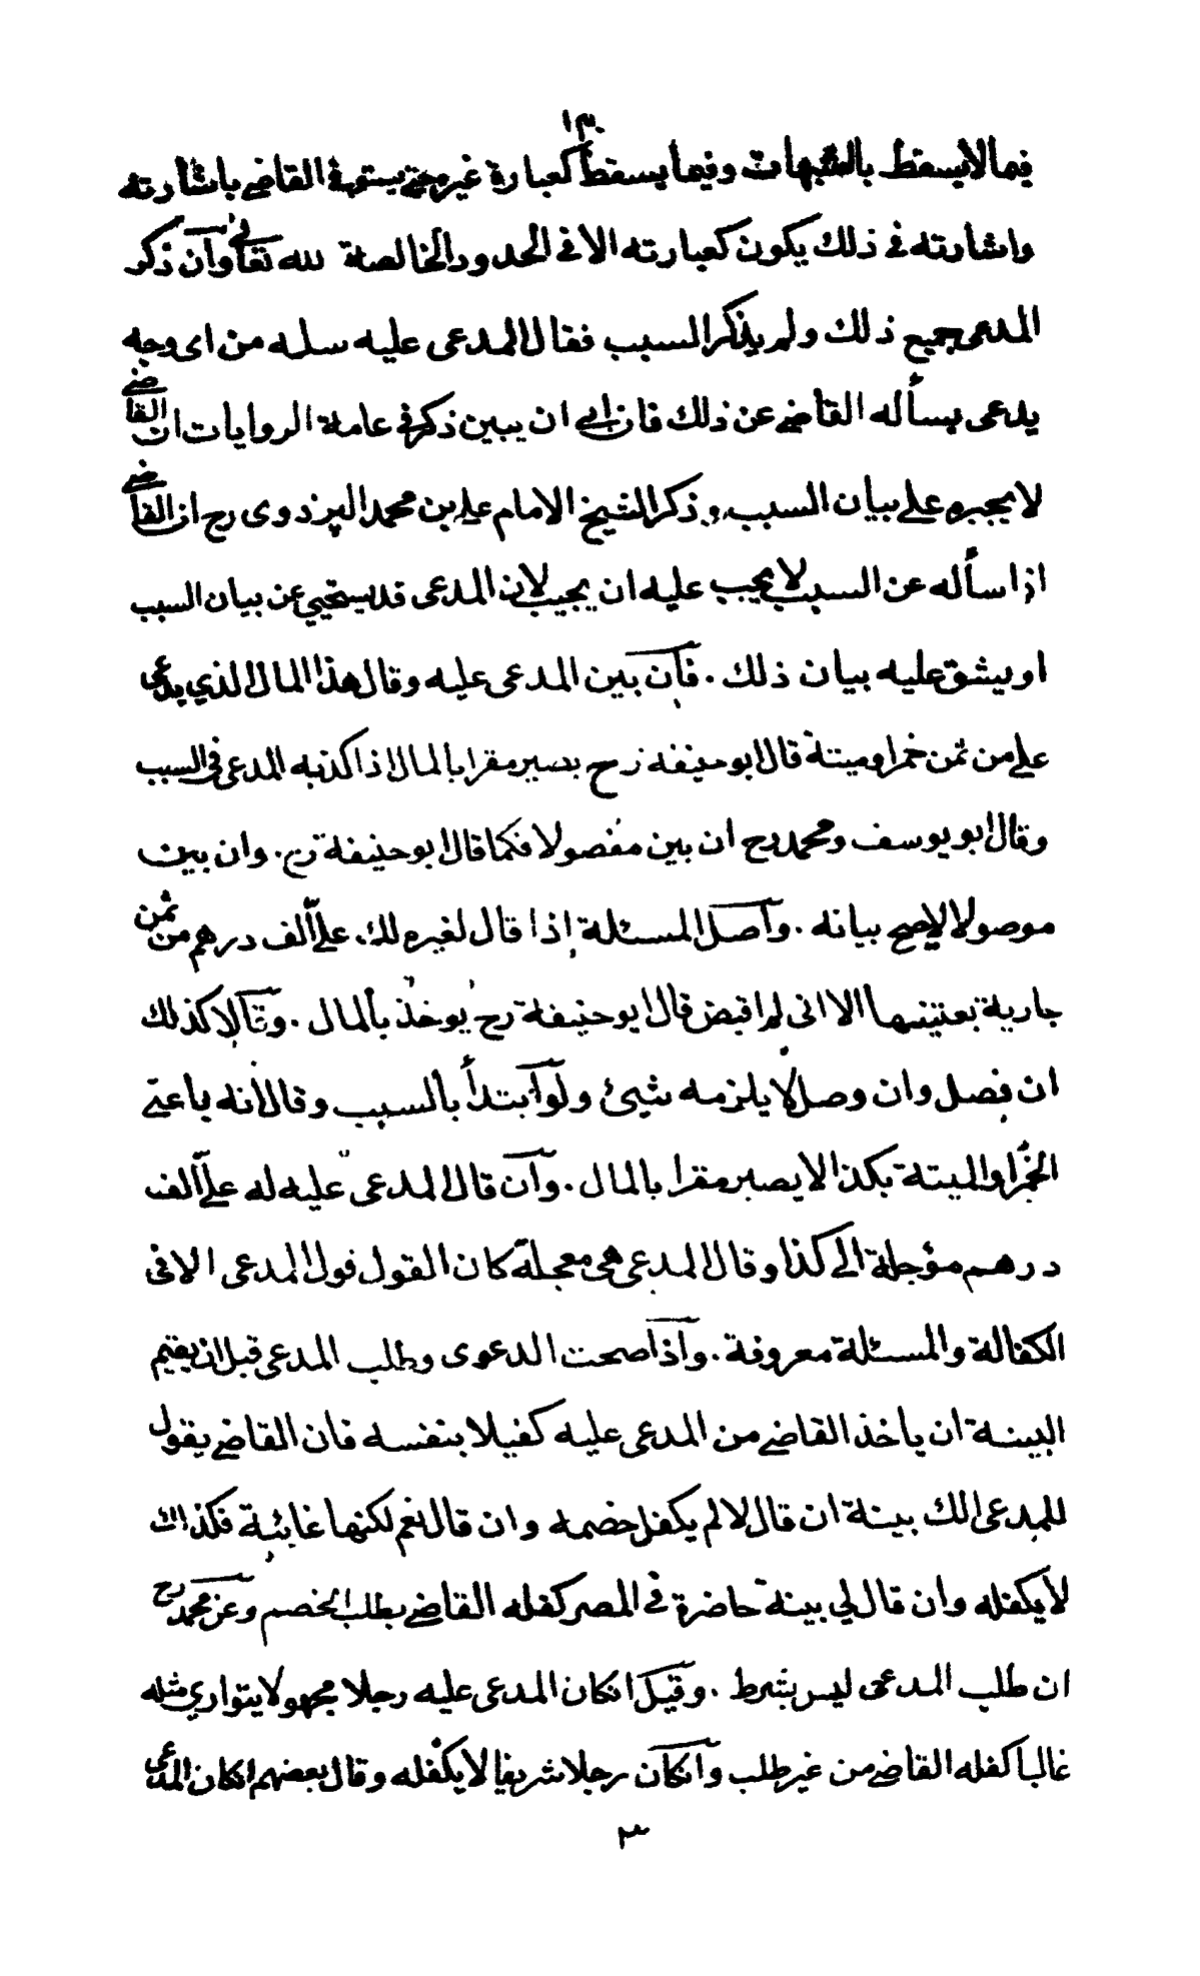 ١٣
فيما لا يسقط بالشبهات وفيما يسقط كعبارة غيره حتى يستوي القاضي باشارته
واشارته في ذلك يكون كعبارته الا في الحدود الخالصة لله تعالى وآن ذكر
المدعى جميع ذلك ولم يذكر السبب فقال المدعى عليه سله من اى وجه
يدعى يسأله القاضي عن ذلك فان ابى ان يبين ذكر في عامة الروايات ان القاضي
لا يجبره على بيان السبب وذكر الشيخ الامام على بن محمد البزدوى رح ان القاضي
اذا سأله عن السبب لا يجب عليه ان يجيب لان المدعى قد يستحيي عن بيان السبب
او يشق عليه بيان ذلك . فآن بين المدعى عليه وقال هذا المال الذي يدعى
علي من ثمن خمر او ميتة قال ابو حنيفة رح يصير مقرا بالمال اذا كذبه المدعى في السبب
وقال ابو يوسف ومحمد رح ان بين مفصولا فكما قال ابو حنيفة رح . وان بين
موصولا لا يصح بيانه . وآصل المسئلة إذا قال لغيره لك علي ألف درهم من ثمن
جارية بعتنيها الا انى لم اقبض قال ابو حنيفة رح يوخذ بالمال . وقآلا كذلك
ان فصل وان وصل لا يلزمه شيئ ولو آبتدأ بالسبب وقال انه باعني
الخمر او الميتة بكذا لا يصير مقرا بالمال . وآن قال المدعى عليه له علي ألف
درهم مؤجلة الى كذا وقال المدعى هى معجلة كان القول قول المدعى الا في
الكفالة والمسئلة معروفة . وآذا صحت الدعوى وطلب المدعى قبل ان يقيم
البينة ان ياخذ القاضي من المدعى عليه كفيلا بنفسه فان القاضي يقول
للمدعى الك بينة ان قال لا لم يكفل خصمه وان قال نعم لكنها غائبة فكذلك
لا يكفله وان قال لي بينة حاضرة في المصر كفله القاضي بطلب الخصم وعن محمد رح
ان طلب المدعى ليس بشرط . وقيل انكان المدعى عليه رجلا مجهولا يتوارى مثله
غالبا كفله القاضي من غير طلب وآنكان رجلا شريفا لا يكفله وقال بعضهم انكان المدعى
٣